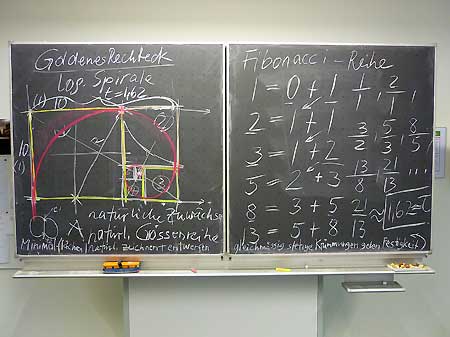 Goldenes Rechteck
Log. Spirale
t=1,62
(4) 10
(2)
10
(1)
natürliche Zuwächse
natürl. Grössenreihe
Minimalflächen natürl. zeichnen+entwerfen
Fibonacci-Reihe
1 = 0 + 1 1/1, 2/1,
2 = 1 + 1 3/2, 5/3, 8/5,
3 = 1 + 2
5 = 2 + 3 13/8, 21/13 ...
8 = 3 + 5 21/13 ≈ 1,62 = τ
13 = 5 + 8
gleichmässig stetige Krümmungen geben Festigkeit)